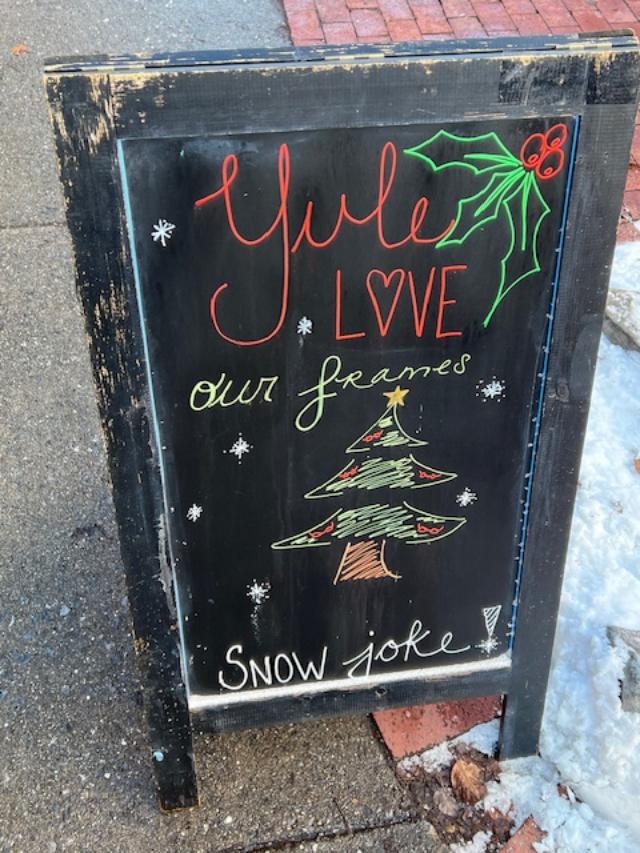 Yule
LOVE
our frames
SNOW joke!